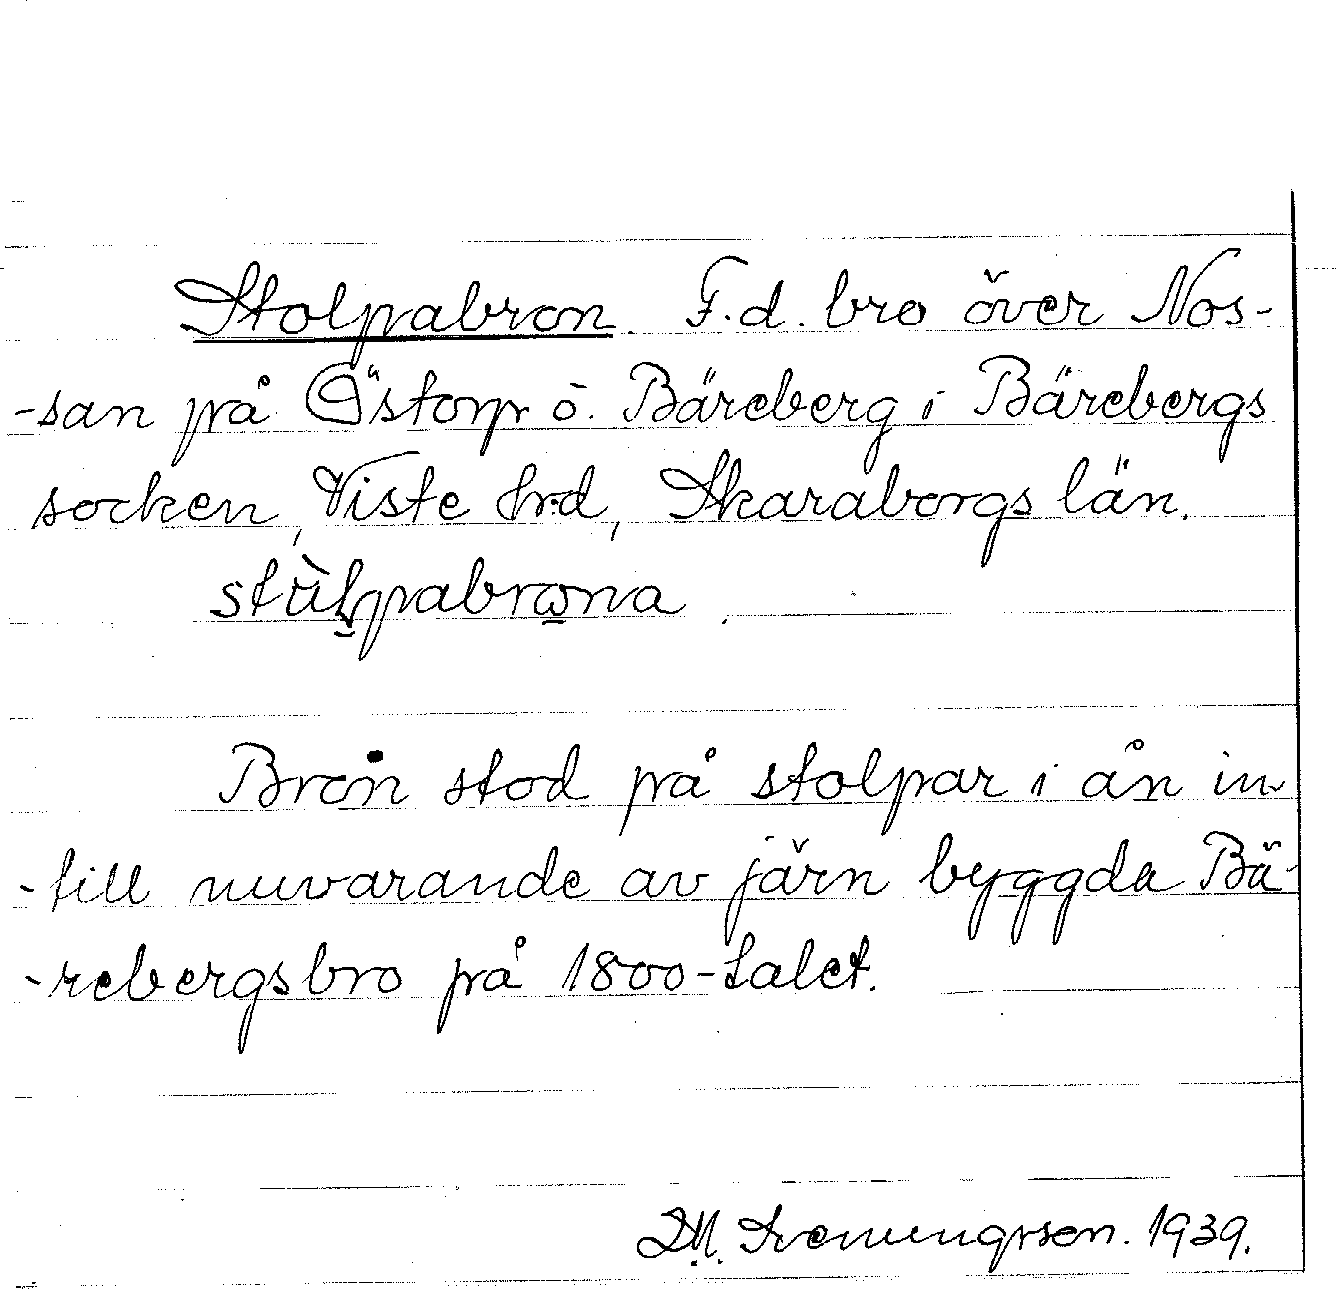 Stolpabron. F.d. bro över Nos-
-san på Östorp o. Bäreberg i Bärebergs
socken, Viste hrd, Skaraborgs län.
stùlpabrona
Bron stod på stolpar i ån in-
-till nuvarande av järn byggda Bä-
-rebergsbro på 1800-talet.
1939.